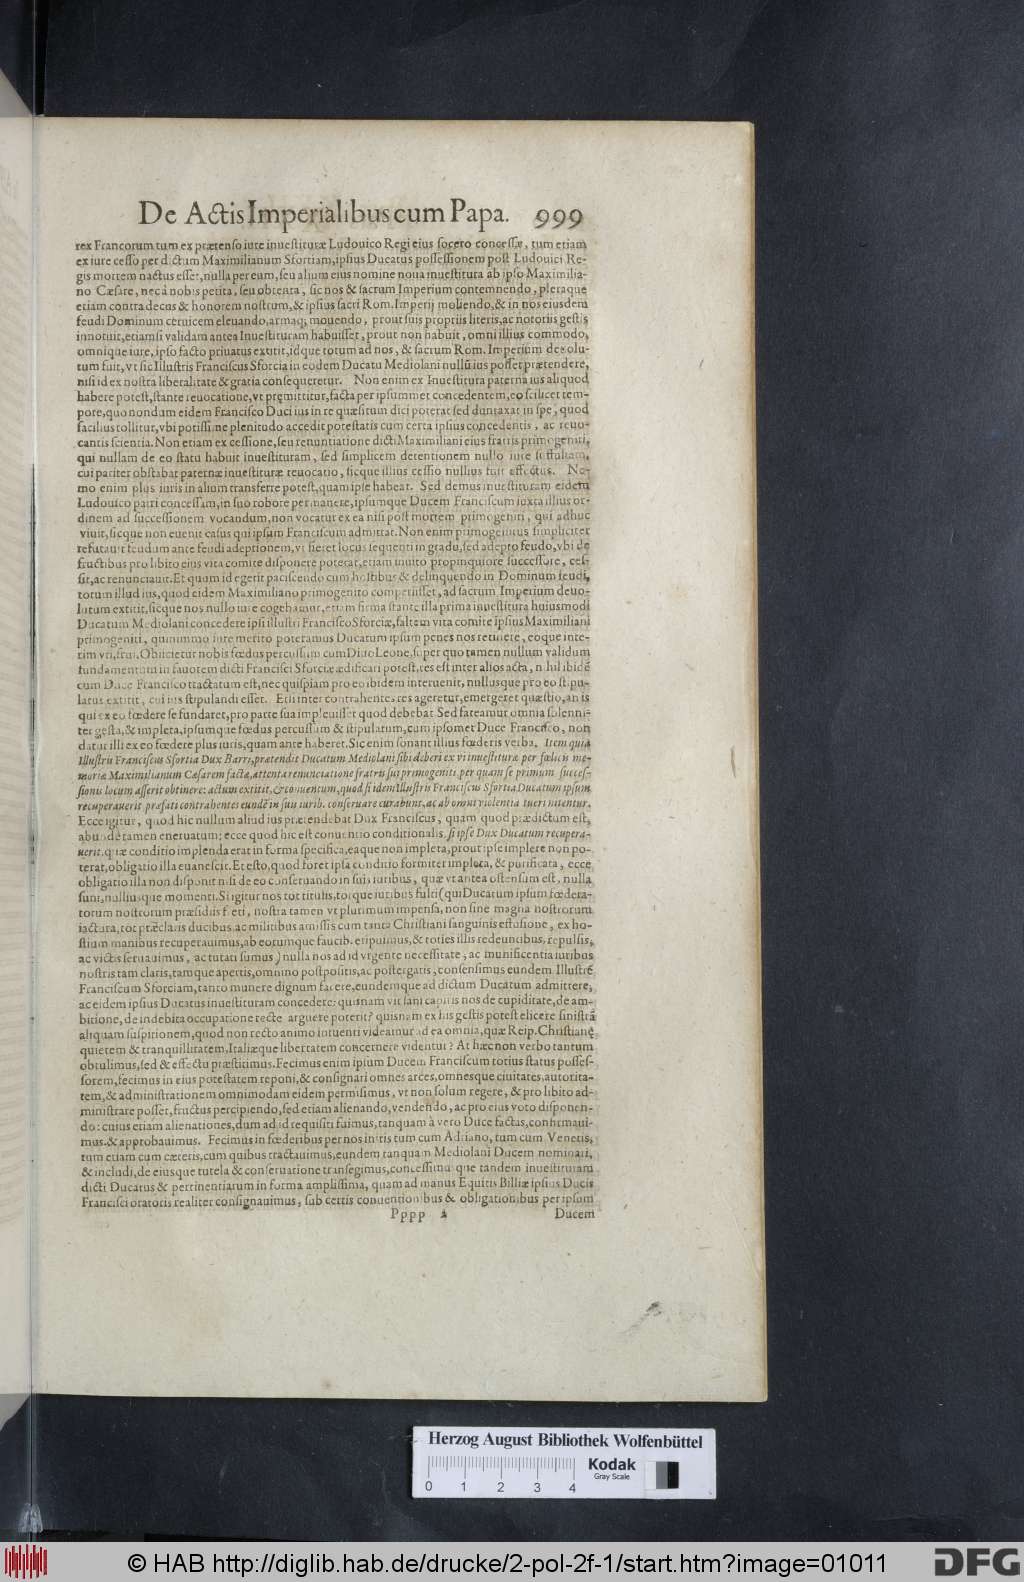 De Actis Imperialibus cum Papa. 999
rex Francorum tum ex prætenso iure inuestituræ Ludouico Regi eius socero concessæ, tum etiam
ex iure cesso per dictum Maximilianum Sfortiam, ipsius Ducatus possessionem post Ludouici Re-
gis mortem nactus esset, nulla per eum, seu alium eius nomine noua inuestitura ab ipso Maximilia-
no Cæsare, nec à nobis petita, seu obtenta, sic nos & sacrum Imperium contemnendo, pleraque
etiam contra decus & honorem nostrum, & ipsius sacri Rom. Imperij moliendo, & in nos eiusdem
feudi Dominum ceruicem eleuando, armaq; mouendo, prout suis propriis literis, ac notoriis gestis
innotuit, etiamsi validam antea Inuestituram habuisset, prout non habuit, omni illius commodo,
omnique iure, ipso facto priuatus extitit, idque totum ad nos, & sacrum Rom. Imperium deuolu-
tum fuit, vt sic Illustris Franciscus Sforcia in eodem Ducatu Mediolani nullũ ius posset prætendere,
nisi id ex nostra liberalitate & gratia consequeretur. Non enim ex Inuestitura paterna ius aliquod
habere potest, stante reuocatione, vt pręmittitur, facta per ipsummet concedentem, eo scilicet tem-
pore, quo nondum eidem Francisco Duci ius in re quæsitum dici poterat sed duntaxat in spe, quod
facilius tollitur, vbi potissime plenitudo accedit potestatis cum certa ipsius concedentis, ac reuo-
cantis scientia. Non etiam ex cessione, seu renuntiatione dicti Maximiliani eius fratris primogeniti,
qui nullam de eo statu habuit inuestituram, sed simplicem detentionem nullo iure suffultam,
cui pariter obstabat paternæ inuestituræ reuocatio, sicque illius cessio nullius fuit effectus. Ne-
mo enim plus iuris in alium transferre potest, quam ipse habeat. Sed demus inuestituram eidem
Ludouico patri concessam, in suo robore permanere, ipsumque Ducem Franciscum iuxta illius or-
dinem ad successionem vocandum, non vocatur ex ea nisi post mortem primogeniti, qui adhuc
viuit, sicque non euenit casus qui ipsum Franciscum admittat. Non enim primogenitus simpliciter
refutauit feudum ante feudi adeptionem, vt fieret locus sequenti in gradu, sed adepto feudo, vbi de
fructibus pro libito eius vita comite disponere poterat, etiam inuito propinquiore successore, ces-
sit, ac renunciauit. Et quum id egerit paciscendo cum hostibus & delinquendo in Dominum feudi,
totum illud ius, quod eidem Maximiliano primogenito competiisset, ad sacrum Imperium deuo-
lutum extitit, sicque nos nullo iure cogebamur, etiam firma stante illa prima inuestitura huiusmodi
Ducatum Mediolani concedere ipsi illustri Francisco Sforciæ, saltem vita comite ipsius Maximiliani
primogeniti, quinimmo iure merito poteramus Ducatum ipsum penes nos retinere, eoque inte-
rim vti, frui. Obiicietur nobis fœdus percussum cum Diuo Leone, super quo tamen nullum validum
fundamentum in fauorem dicti Francisci Sforciæ ædificari potest, res est inter alios acta, nihil ibidẽ
cum Duce Francisco tractatum est, nec quispiam pro eo ibidem interuenit, nullusque pro eo stipu-
latus extitit, cui ius stipulandi esset. Etsi inter contrahentes res ageretur, emergeret quæstio, an is
qui ex eo fœdere se fundaret, pro parte sua impleuisset quod debebat. Sed fateamur omnia solenni-
ter gesta, & impleta, ipsumque fœdus percussum & stipulatum, cum ipsomet Duce Francisco, non
datur illi ex eo fœdere plus iuris, quam ante haberet. Sic enim sonant illius fœderis verba. Item quia
Illustris Franciscus Sfortia Dux Barri, prætendit Ducatum Mediolani sibi deberi ex vi inuestituræ per fœlicis me-
moriæ Maximilianum Cæsarem factæ, attenta renunciatione fratris sui primogeniti, per quam se primum succes-
sionis locum asserit obtinere: actum extitit, & conuentum, quod si idem Illustris Franciscus Sfortia Ducatum ipsum
recuperauerit præfati contrahentes eundẽ in suis iurib. conseruare curabunt, ac ab omni violentia tueri nitentur.
Ecce igitur, quod hic nullum aliud ius prætendebat Dux Franciscus, quam quod prædictum est,
abunde tamen eneruatum: ecce quod hic est conuentio conditionalis, si ipse Dux Ducatum recupera-
uerit. quæ conditio implenda erat in forma specifica, eaque non impleta, prout ipse implere non po-
terat, obligatio illa euanescit. Et esto, quod foret ipsa conditio formiter impleta, & purificata, ecce
obligatio illa non disponit nisi de eo conseruando in suis iuribus, quæ vt antea ostensum est, nulla
sunt, nulliusque momenti. Si igitur nos tot titulis, totque iuribus fulti (qui Ducatum ipsum fœdera-
torum nostrorum præsidiis freti, nostra tamen vt plurimum impensa, non sine magna nostrorum
iactura, tot præclaris ducibus, ac militibus amissis cum tanta Christiani sanguinis effusione, ex ho-
stium manibus recuperauimus, ab eorumque faucib. eripuimus, & toties illis redeuntibus, repulsis,
ac victis seruauimus, ac tutati sumus) nulla nos ad id vrgente necessitate, ac munificentia iuribus
nostris tam claris, tamque apertis, omnino postpositis, ac postergatis, consensimus eundem Illustrẽ
Franciscum Sforciam, tanto munere dignum facere, eundemque ad dictum Ducatum admittere,
ac eidem ipsius Ducatus inuestituram concedere: quisnam vir sani capitis nos de cupiditate, de am-
bitione, de indebita occupatione recte arguere poterit? quisnam ex his gestis potest elicere sinistrã
aliquam suspitionem, quod non recto animo intuenti videamur ad ea omnia, quæ Reip. Christianę
quietem & tranquillitatem, Italiæque libertatem concernere videntur? At hæc non verbo tantum
obtulimus, sed & effectu præstitimus. Fecimus enim ipsum Ducem Franciscum totius status posses-
sorem, fecimus in eius potestatem reponi, & consignari omnes arces, omnesque ciuitates, autorita-
tem, & administrationem omnimodam eidem permisimus, vt non solum regere, & pro libito ad-
ministrare posset, fructus percipiendo, sed etiam alienando, vendendo, ac pro eius voto disponen-
do: cuius etiam alienationes, dum ad id requisiti fuimus, tanquam à vero Duce factas, confirmaui-
mus, & approbauimus. Fecimus in fœderibus per nos initis tum cum Adriano, tum cum Venetis,
tum etiam cum cæteris, cum quibus tractauimus, eundem tanquam Mediolani Ducem nominari,
& includi, de eiusque tutela & conseruatione transegimus, concessimusque tandem inuestituram
dicti Ducatus & pertinentiarum in forma amplissima, quam ad manus Equitis Billiæ ipsius Ducis
Francisci oratoris realiter consignauimus, sub certis conuentionibus & obligationibus per ipsum
Pppp 4 Ducem
Herzog August Bibliothek Wolfenbüttel
Kodak
Gray Scale
0 1 2 3 4
© HAB http://diglib.hab.de/drucke/2-pol-2f-1/start.htm?image=01011
DFG